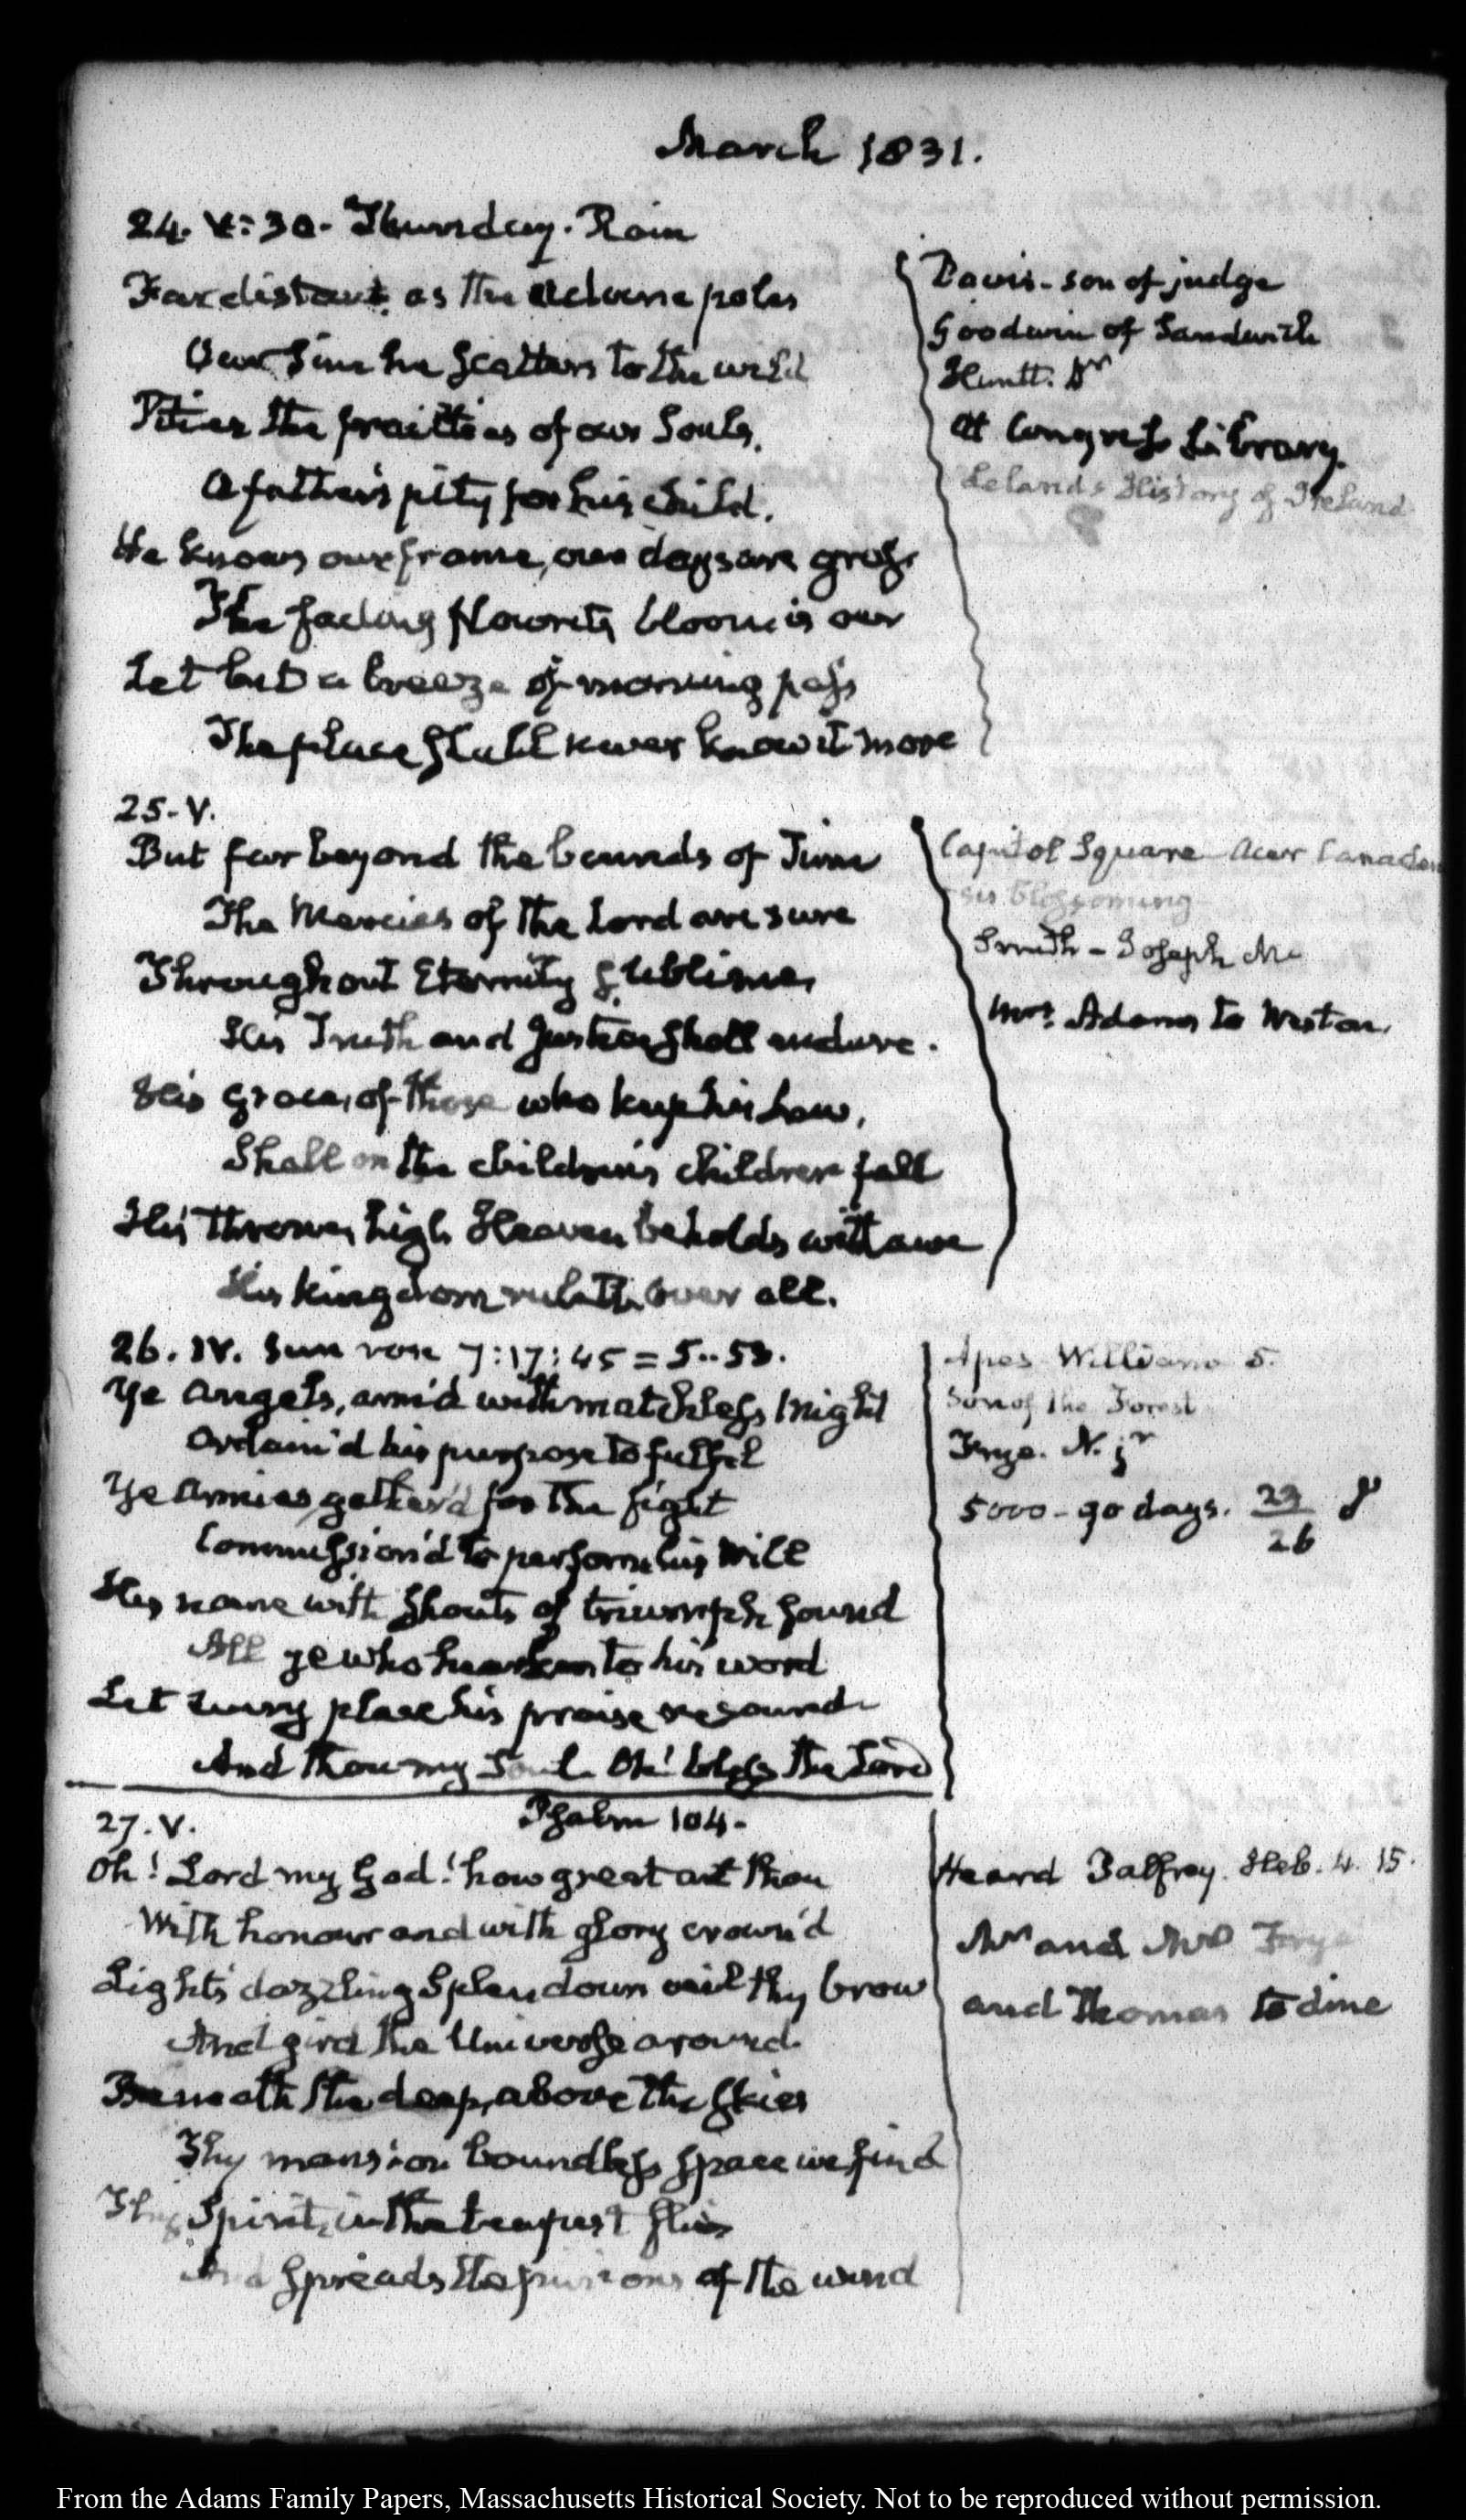 March 1831.
24. V:30. Thursday. Rain
Far distant as the adverse poles
Our Sins he scatters to the wild
Pities the frailties of our Souls,
A father's pity for his child.
He knows our frame, our days are grass
The fading flowrets bloom is our
Let but a breeze of morning pass
The place shall never know it more
Davis - son of judge
Goodwin of Sandwich
Huntt. Dr
at Congress Library.
Lelands History of Ireland
25-V.
But far beyond the bounds of Time
The Mercies of the Lord are sure
Throughout Eternity sublime,
His Truth and Justice shall endure.
His grace, of those who keep his Law,
Shall on the children's children fall
His throne, high Heaven beholds with awe
His kingdom ruleth over all.
Capitol Square Acer Canaden
sis blossoming
Smith - Joseph
Mrs. Adams to Weston.
26. IV. Sun rose 7:17:45 = 5..53.
Ye Angels, arm'd with matchless might
Ordain'd his purpose to fulfil
Ye armies gather'd for the fight
Commission'd to perform his will
His name with shouts of triumph sound
All ye who hearken to his word
Let every place his praise resound
And thou my Soul Oh! bless the Lord
Apes William 5.
Son of the Forest
Frye. N. jr
5000 - 90 days. 23
26
27. V. Psalm 104.
Oh! Lord my God! how great art thou
With honour and with glory crown'd
Light's dazzling Splendours veil thy brow
And gird the Universe around.
Beneath the deep, above the skies
Thy mansion boundless space we find
Thy Spirit, in the tempest flies
And spreads the pinions of the wind
Heard Palfrey. Heb. 4. 15.
Mr and Mrs Frye
and Thomas to dine
From the Adams Family Papers, Massachusetts Historical Society. Not to be reproduced without permission.